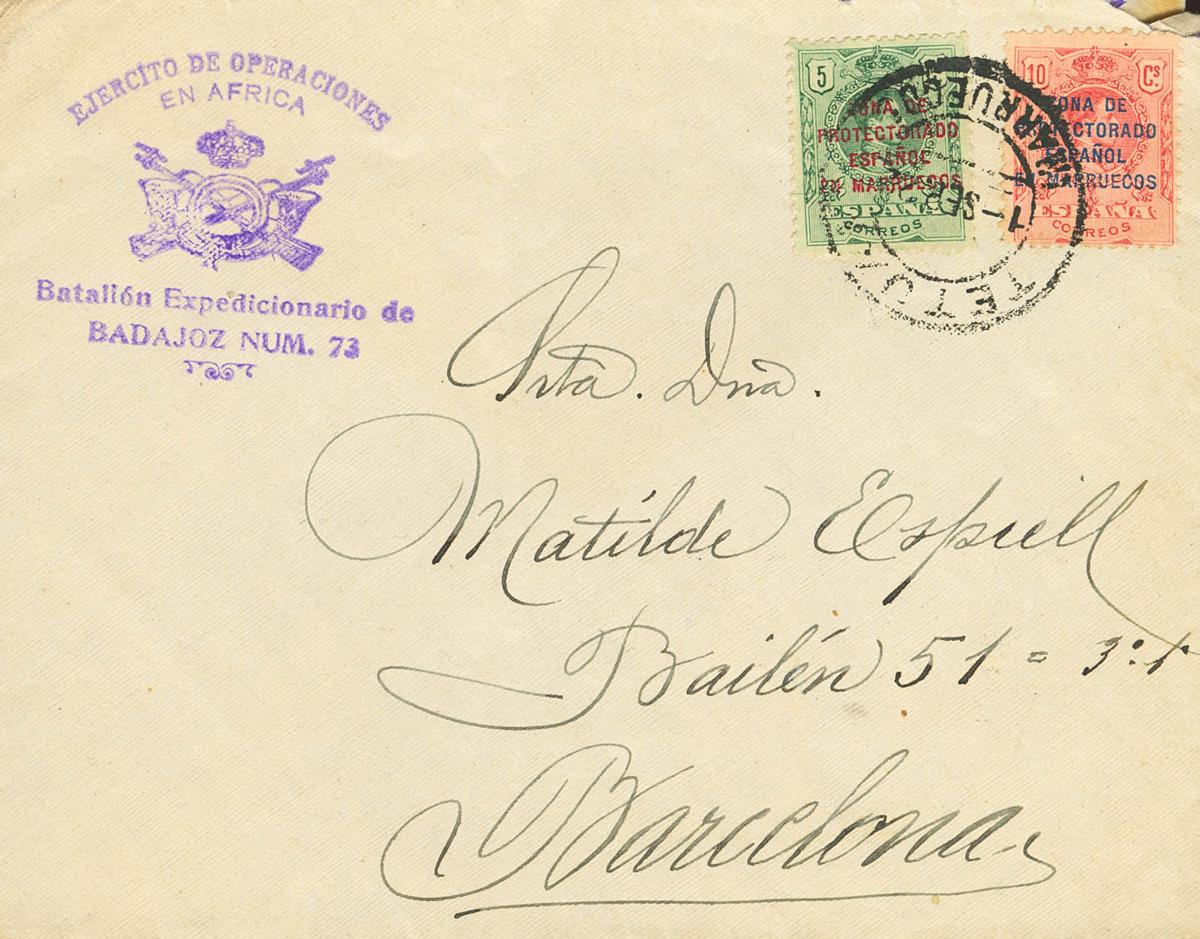 EJERCÍTO DE OPERACIONES
EN AFRICA
Batallón Expedicionario de
BADAJOZ NUM. 73
5
ZONA DE
PROTECTORADO
ESPAÑOL
EN MARRUECOS
ESPAÑA
CORREOS
10 Cs
ZONA DE
PROTECTORADO
ESPAÑOL
EN MARRUECOS
ESPAÑA
CORREOS
MARRUECOS
1 - SEP
TETUAN
Srta. Dña.
Matilde Espiell
Bailén 51 = 3º. 1ª
Barcelona